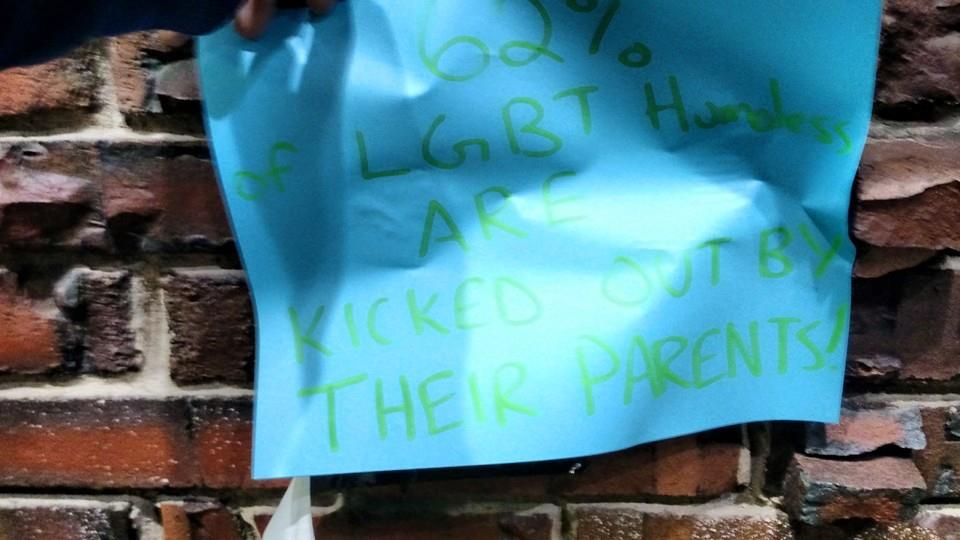 62%
of LGBT Homeless
ARE
KICKED OUT BY
THEIR PARENTS!